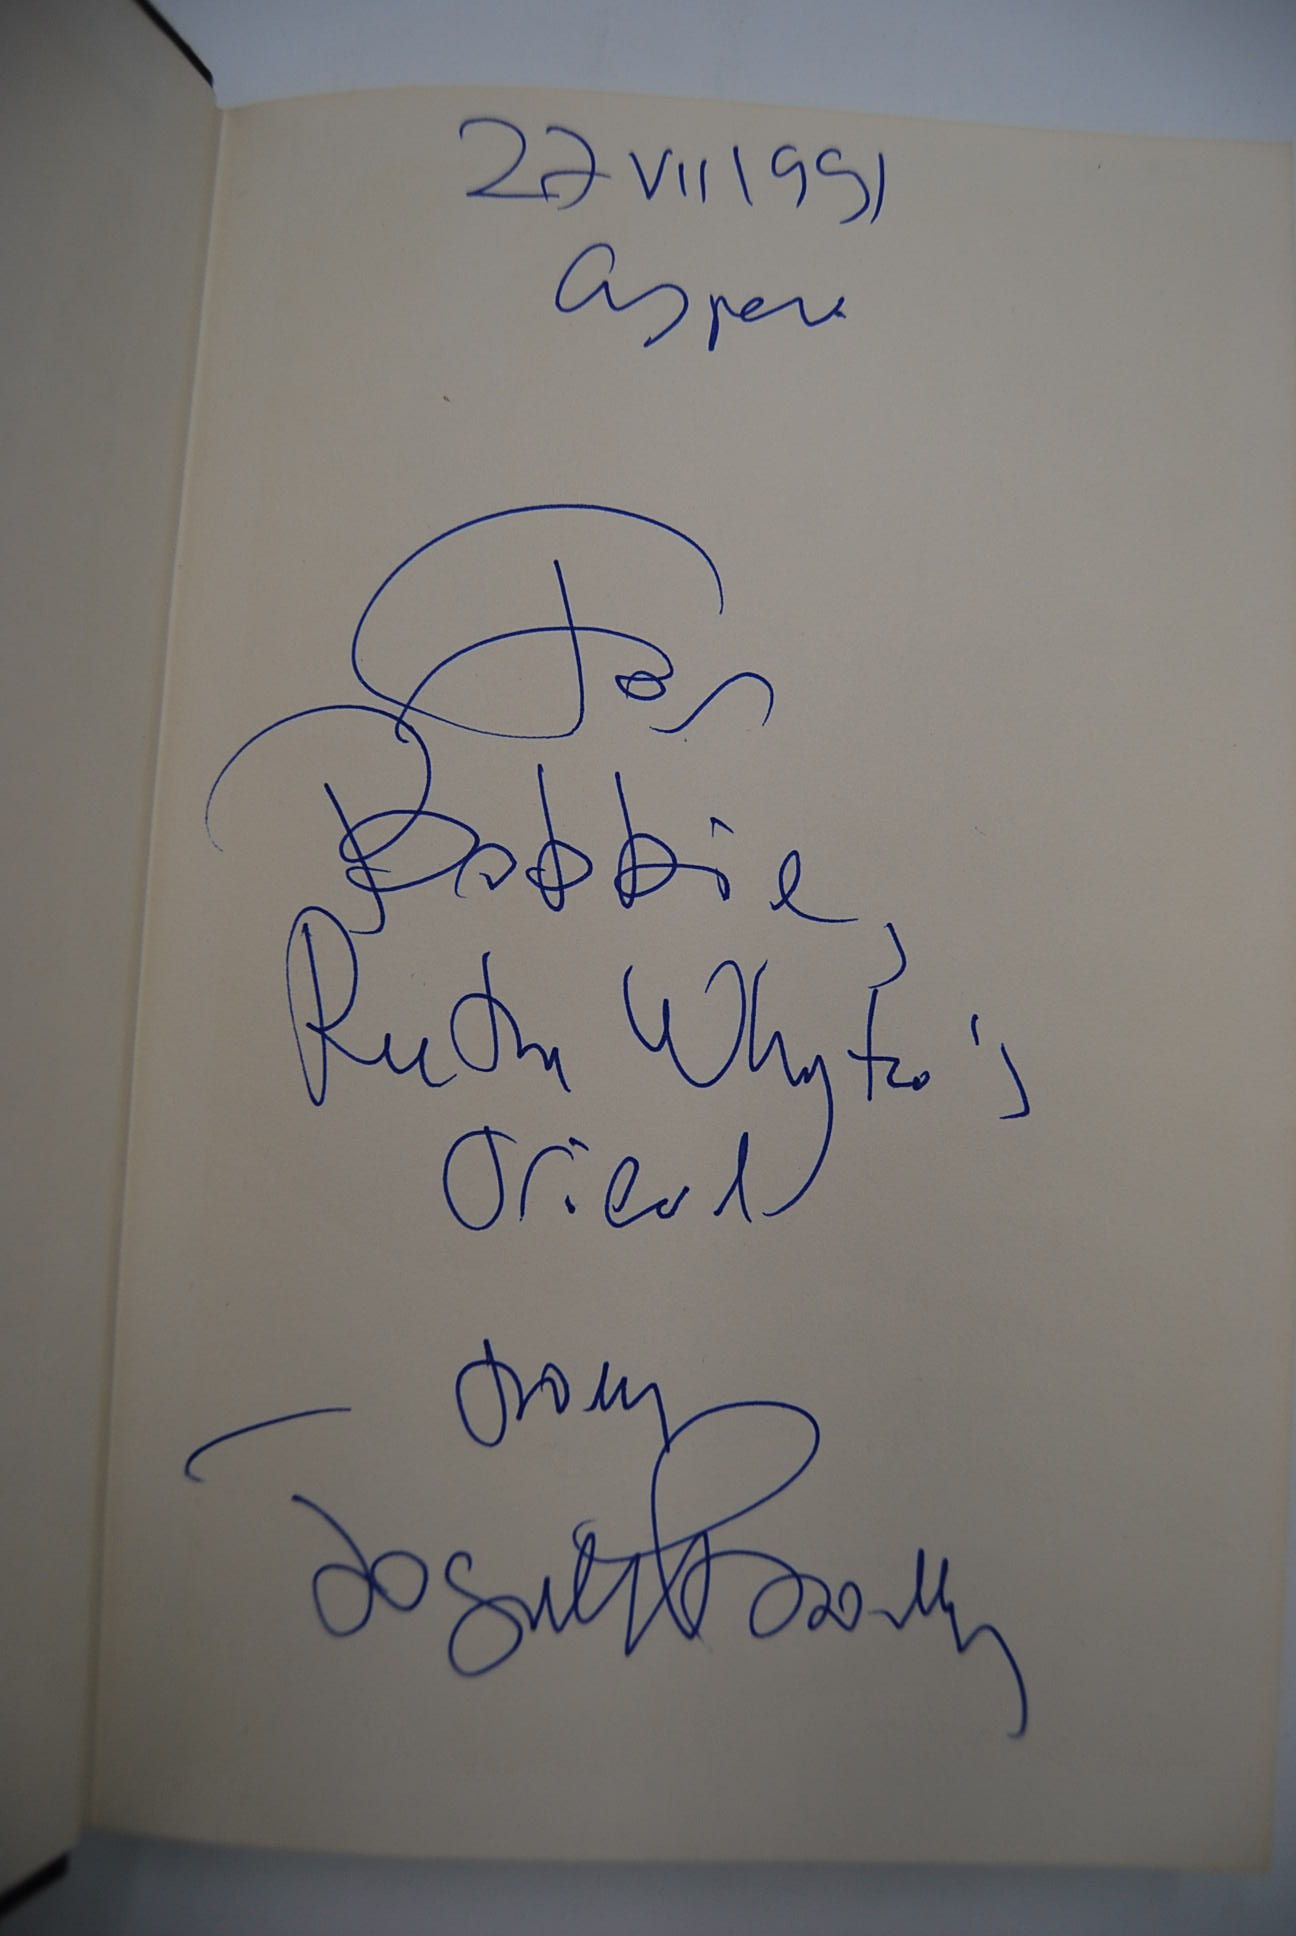 27 VII 1991
Aspen
For
Bobbie,
Ruth Whyte's
friend
from
Joseph Brodsky